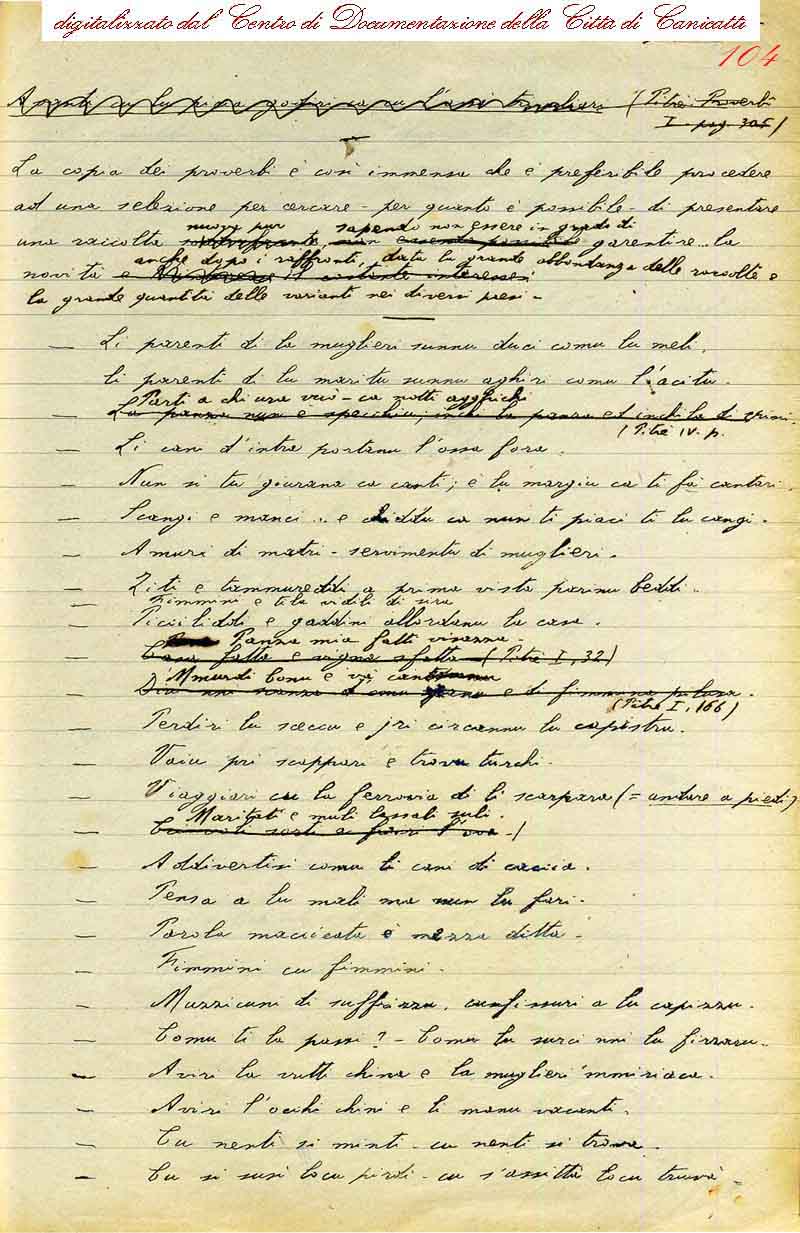 digitalizzato dal Centro di Documentazione della Città di Canicattì
104
(Pitrè Proverbi
I. pag. 305)
La copia dei proverbi è così immensa che è preferibile procedere
ad una selezione per cercare - per quanto è possibile - di presentare
nuova pur sapendo non essere in grado di
una raccolta garentire la
anche dopo i raffronti, data la grande abbondanza delle raccolte e
novità e
la grande quantità delle varianti nei diversi paesi -
— Li parenti di la muglieri sunnu duci comu lu meli,
li parenti di lu maritu sunnu aghiri comu l'acitu.
Parti a chi ura vuò - ca notti agghichi
— La panza nun è specchiu; inchi la panza ed inchila di spini.
(Pitrè IV. p.
— Li cani d'intra portanu l'ossa fora.
— Nun si tu giurana ca canti; è lu margiu ca ti fà cantari.
— Scangi e manci... e chiddu ca nun ti piaci ti lu cangi.
— Amuri di matri - servimentu di muglieri.
— Ziti e tammureddi a prima vista parinu beddi.
— Fimmini e tila viditi di sira
— Piciliddi e gaddini allordanu la casa.
Panza mia fatti visazza -
— Casa fatta e vigna sfatta - (Pitrè I, 32)
— (Pitrè I, 166)
— Perdiri lu sceccu e jri circannu lu capistru.
— Vaiu pri scappari e trovu turchi.
— Viaggiari cu la ferrovia di li scarpara (= andare a piedi)
Maritati e muli lassali suli.
— Cu voli sorti
— Addivertisi comu li cani di caccia.
— Pensa a lu mali ma nun lu fari.
— Parola maccicata è mezza ditta -
— Fimmini cu fimmini.
— Muzzicuni di suffrizzu, cunfissuri a lu capizzu.
— Comu ti la passi? - Comu lu surci nni lu
— Aviri la vutti china e la muglieri 'mmriaca.
— Aviri l'occhi chini e li manu vacanti.
— Cu nenti si minti - cu nenti si trova.
— Cu si susì locu pirdì - cu s'assittà locu truvà -